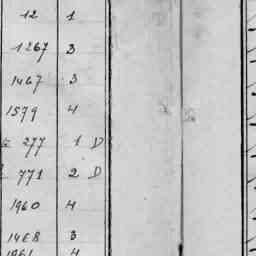 12 1
1267 3
1467 3
1579 4
277 1 D
771 2 D
1960 4
1468 3
1961 4